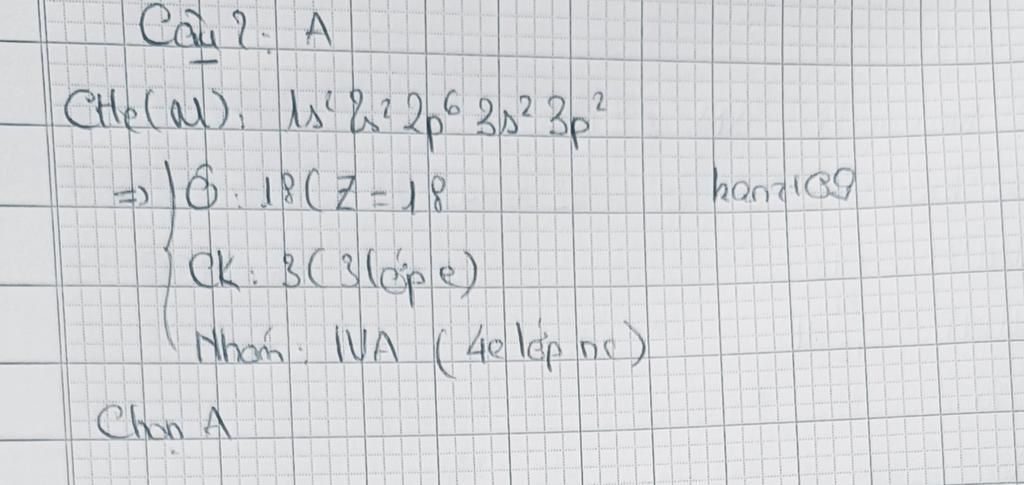 Câu 2: A
CHe(M): 1s² 2s² 2p⁶ 3s² 3p²
=> Ô: 18 (Z = 18
hanz1039
CK: 3 (3 lớp e)
Nhóm: IVA (4e lớp nc)
Chọn A